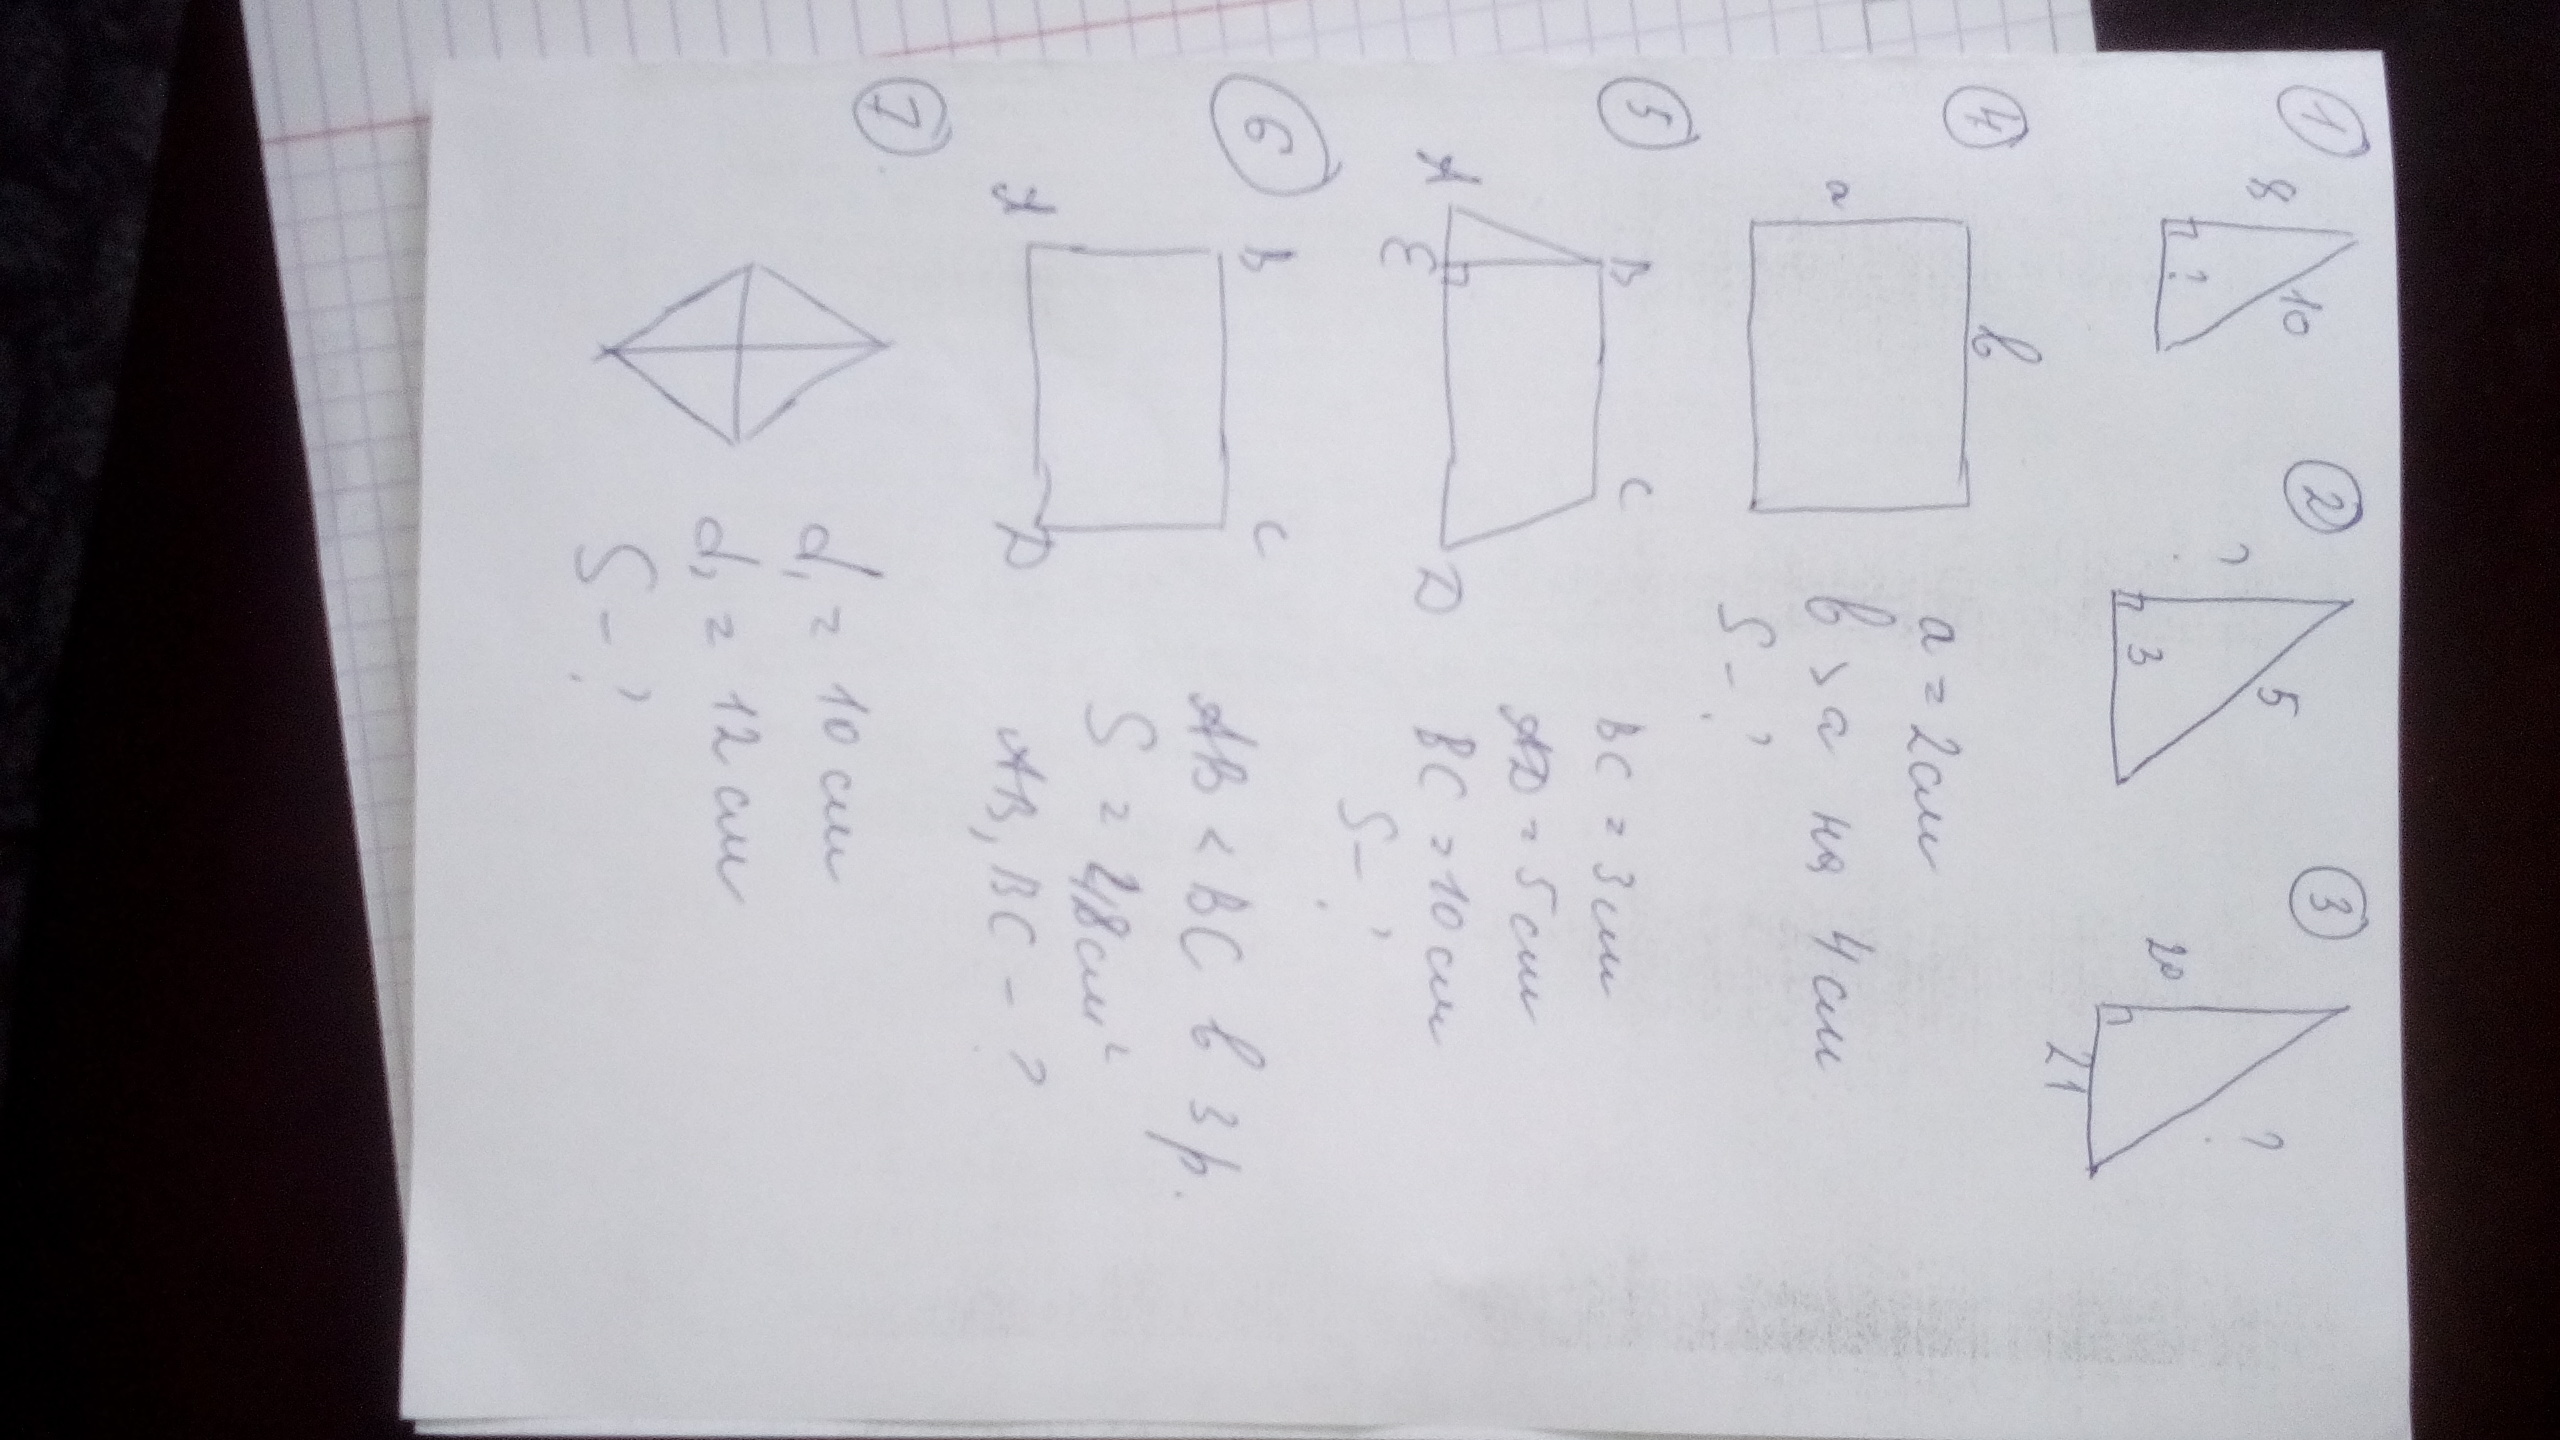 1 2 3
8 10 ? ? 5 3 20 ? 21
4 a b a = 2см
b > a на 4см
S - ?
5 A B C D E BC = 3см
AD = 5см
BC = 10см
S - ?
6 A B C D AB < BC в 3 р.
S = 48см²
AB, BC - ?
7 d₁ = 10см
d₁ = 12см
S - ?